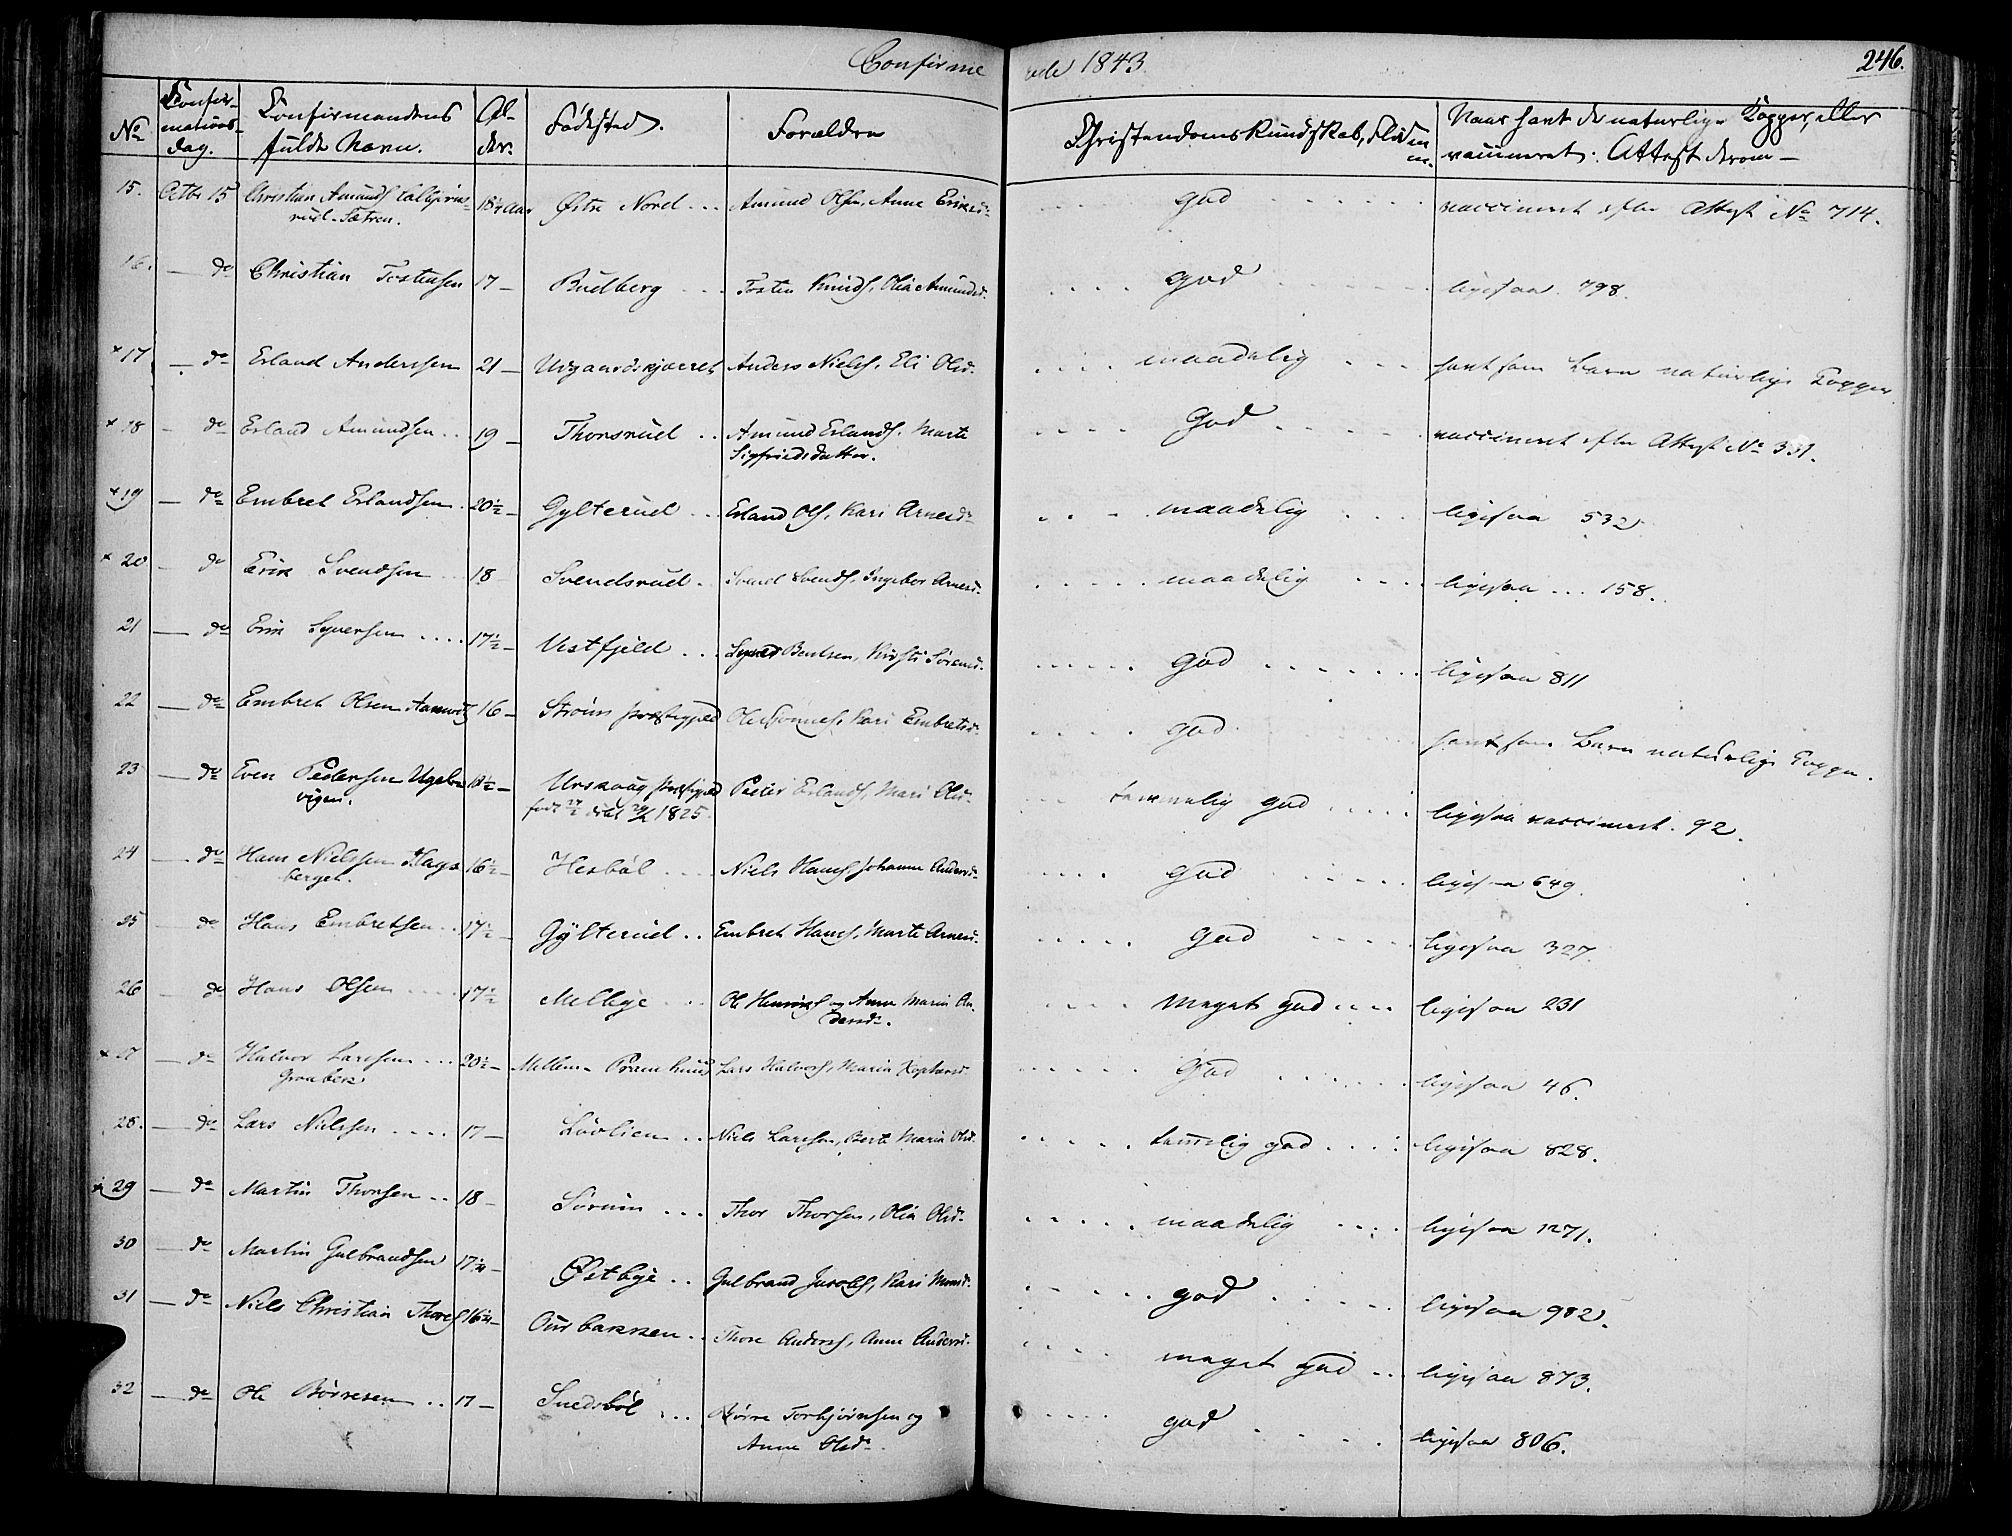 Confirmerede 1843.
246.
No
Confirmations-dag.
Confirmandens fulde Navn.
Alder.
Fødested.
Forældre
Christendoms Kundskab, Flid
Naar havt de naturlige Kopper, eller vaccineret. Attest derom
15. Octbr 15 Christian Amunds 18 1/4 Aar Østre Nord Amund Olsen, Anne Eriksd. god vaccineret efter Attest No 714.
rud-Sætren.
16. — do Christian Tostensen 17 — Budberg Tosten Knuds. Olia Amundsd. god ligesaa 798.
x 17 — do Erland Andersen 21 — Udgaardskjærret Anders Niels. Eli Olsd. maadelig havt som Barn naturlige Kopper.
x 18 — do Erland Amundsen 19 — Thonsrud Amund Erlands. Marte God vaccineret efter Attest No 331.
Sigfriedsdatter.
x 19 — do Embret Erlandsen 20 1/2 — Gylterud Erland Ols. Kari Arnesd. maadelig ligesaa 532
x 20 — do Erik Svendsen 18 Svendsrud Svend Svends. Ingebor Arnesd. maadelig ligesaa 158.
21 — do Erik Syversen 17 1/2 — Vestfjeld Syver Bentsen, Kirsti Sørensd. God ligesaa 811
22 — do Embret Olsen 16 — Strøms Præstegjeld Ole Kari Embretsd. god havt som Barn naturlige Kopper.
23 — do Even Pedersen 18 1/2 — Urskoug Præstegjeld Peder Erlands. Mari Olsd. temmelig god ligesaa vaccineret. 92.
vigen. født døbt 1825.
24 — do Hans Nielsen Hags 16 1/2 — Hesbøl Niels Hans. Johanne Andersd. god ligesaa 649.
berget.
25 — do Hans Embretsen 17 1/2 — Gylterud Embret Hans. Marte Arnesd. god ligesaa 327.
26 — do Hans Olsen 17 1/2 Melbye Ole og Anne Maria Andersd. meget god ligesaa 231
x 27 — do Halvor Larsen 20 1/2 — Mellem Pramhuus Lars Halvors. Maria god ligesaa 46.
28. — do Lars Nielsen 17 — Løvlien Niels Larsen, Berte Maria Olsd. temelig god ligesaa 828.
x 29 — do Martin Thorsen 18 — Sørum Thor Thorsen, Olia Olsd. maadelig ligesaa 1271.
30 — do Martin Gulbrandsen 17 1/4 — Østbye Gulbrand Jacobs. Kari god ligesaa 982.
31 — do Niels Christian Thores 16 3/4 — Ourbakken Thore Anders. Anne Andersd. meget god ligesaa 873.
32 — do Ole Børresen 17 — Snedsbøl Børre Torbjørnsen og god ligesaa 806.
Anne Olsd.